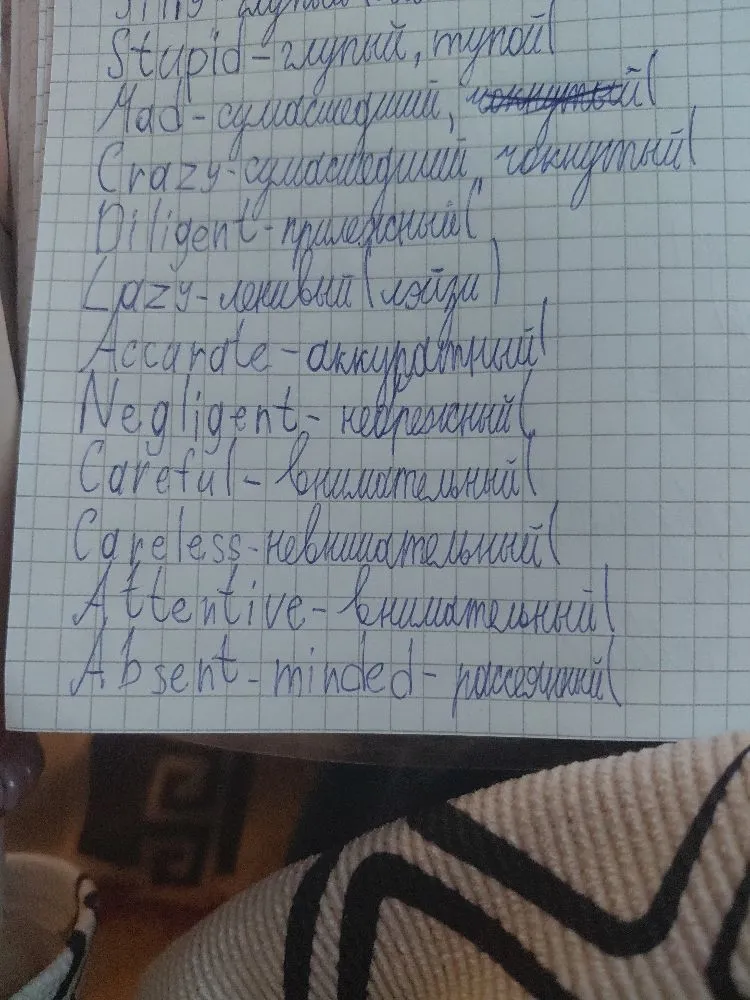 Silly - глупый (
Stupid - глупый, тупой(
Mad - сумасшедший, чокнутый(
Crazy - сумасшедший, чокнутый(
Diligent - прилежный(
Lazy - ленивый (лэйзи)
Accurate - аккуратный(
Negligent - небрежный(
Careful - внимательный(
Careless - невнимательный(
Attentive - внимательный(
Absent-minded - рассеянный(